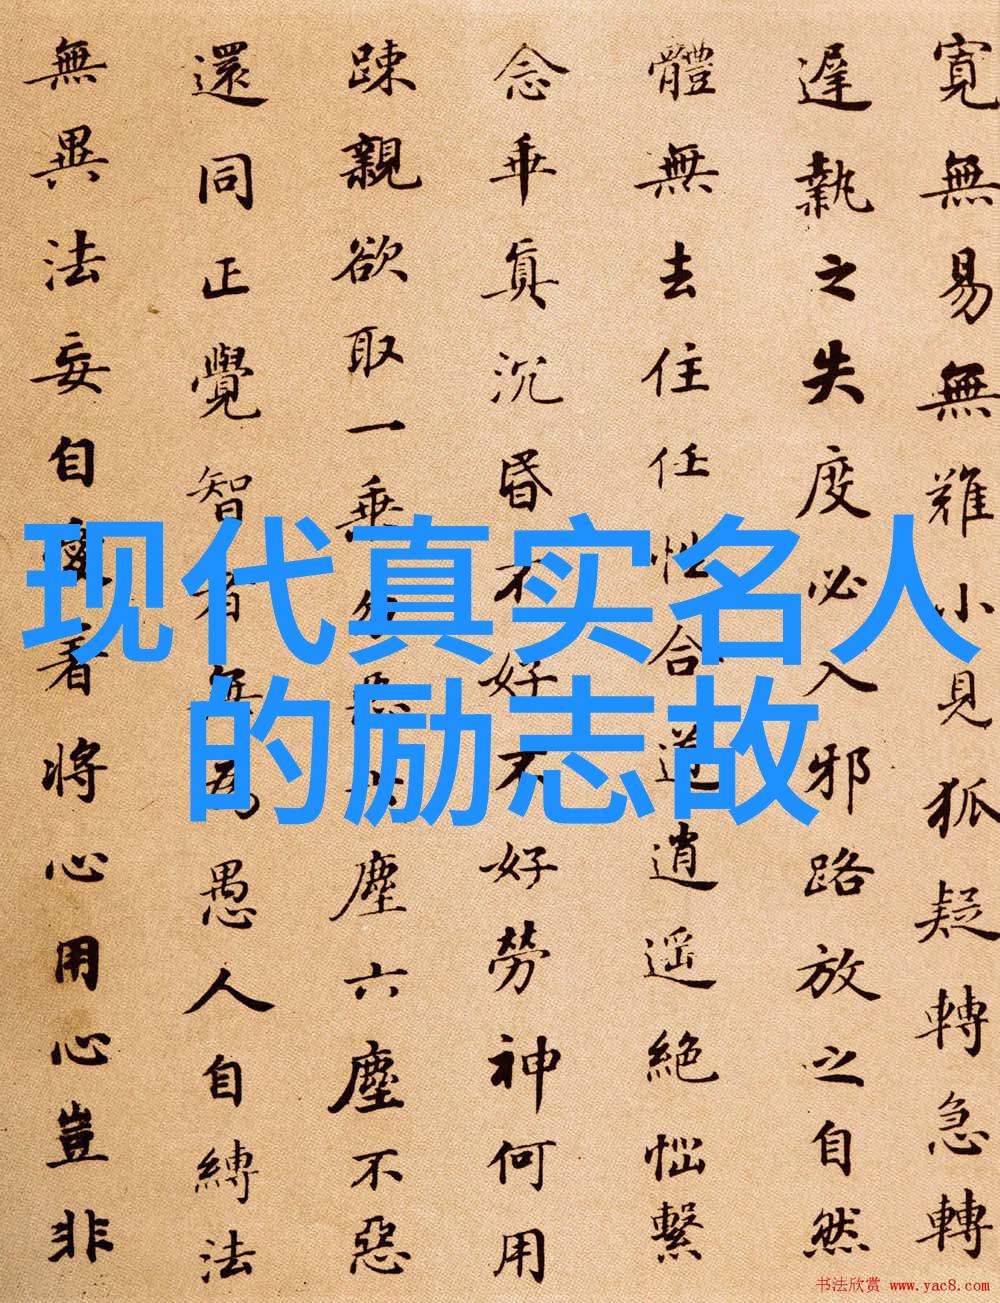 寬無易無難小見狐疑轉急轉
遲執之失度必入邪路放之自然
體無去住任性合道逍遥絶惱繫
念乖真沉昏不好不好勞神何用
踈親欲取一乘勿惡六塵六塵不惡
還同正覺智者無為愚人自縛法
無異法妄自愛着將心用心豈非
现代真实名人
的励志故
书法欣赏 www.yac8.com